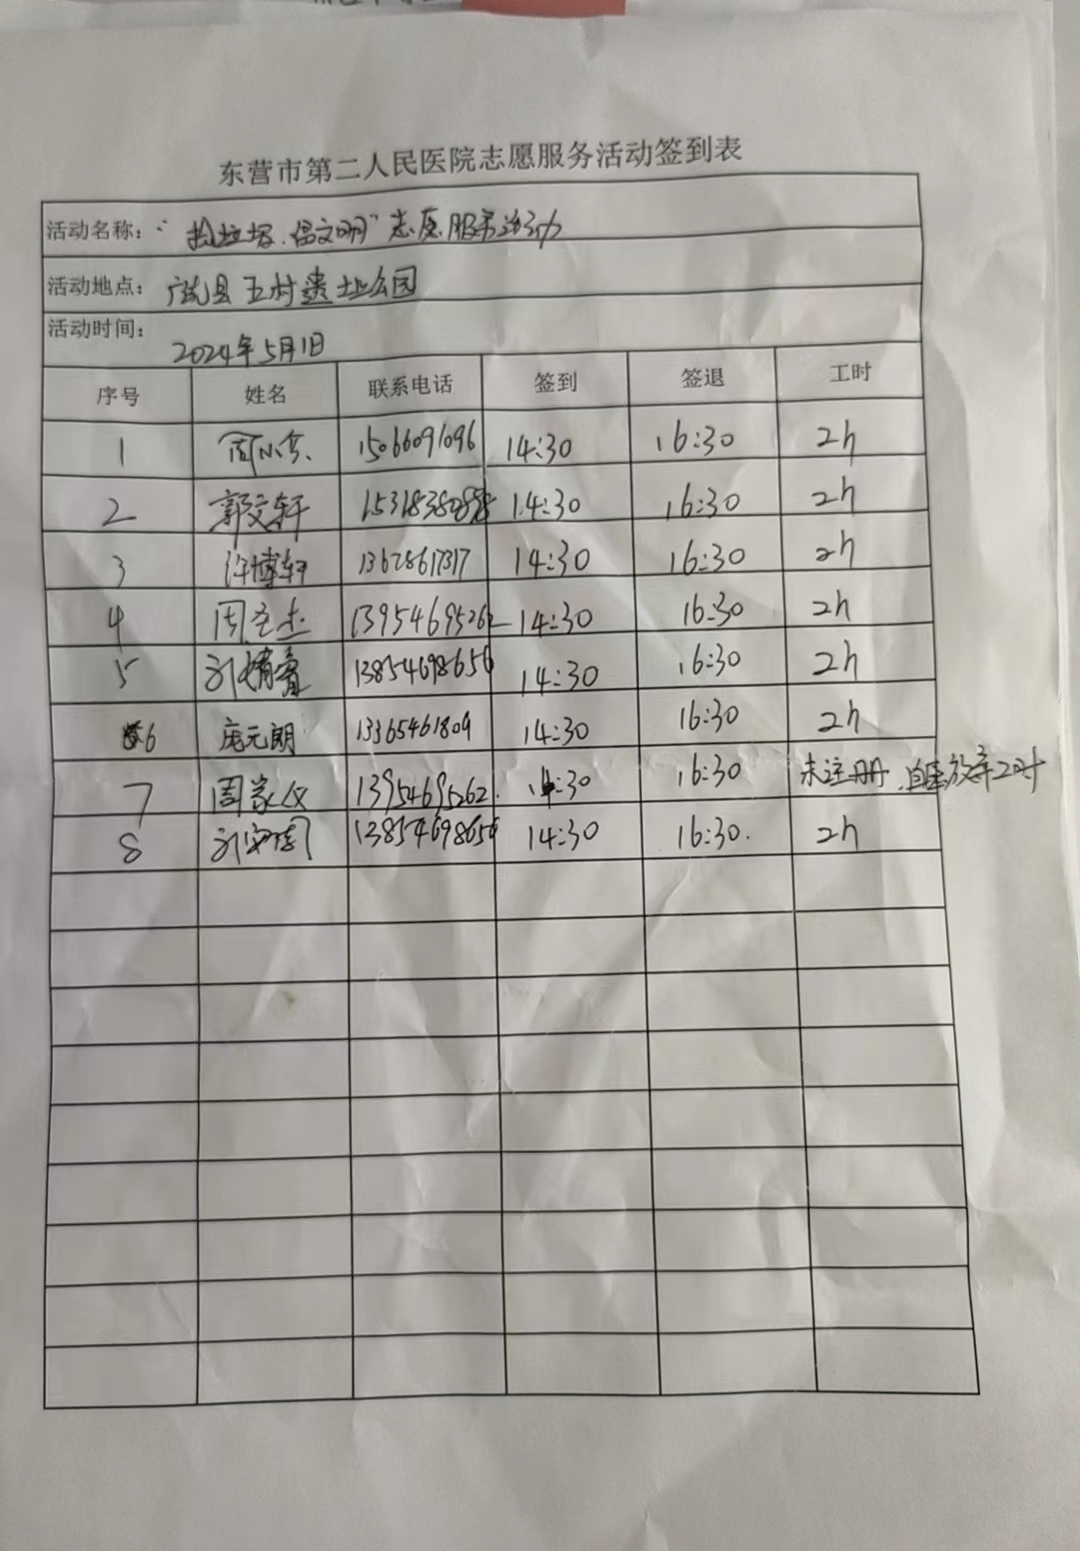 东营市第二人民医院志愿服务活动签到表
活动名称：“捡垃圾、倡文明”志愿服务活动
活动地点：广饶县五村遗址公园
活动时间：2024年5月1日
序号 姓名 联系电话 签到 签退 工时
1 周小东 15066091096 14:30 16:30 2h
2 郭文轩 14:30 16:30 2h
3 许博轩 13678617317 14:30 16:30 2h
4 周圣杰 13954695262 14:30 16:30 2h
5 刘婧萱 13854698656 14:30 16:30 2h
6 庞元朗 13365461809 14:30 16:30 2h
7 周家仪 13954695262. 14:30 16:30 未注册,自愿放弃工时
8 刘安国 13854698656 14:30 16:30. 2h